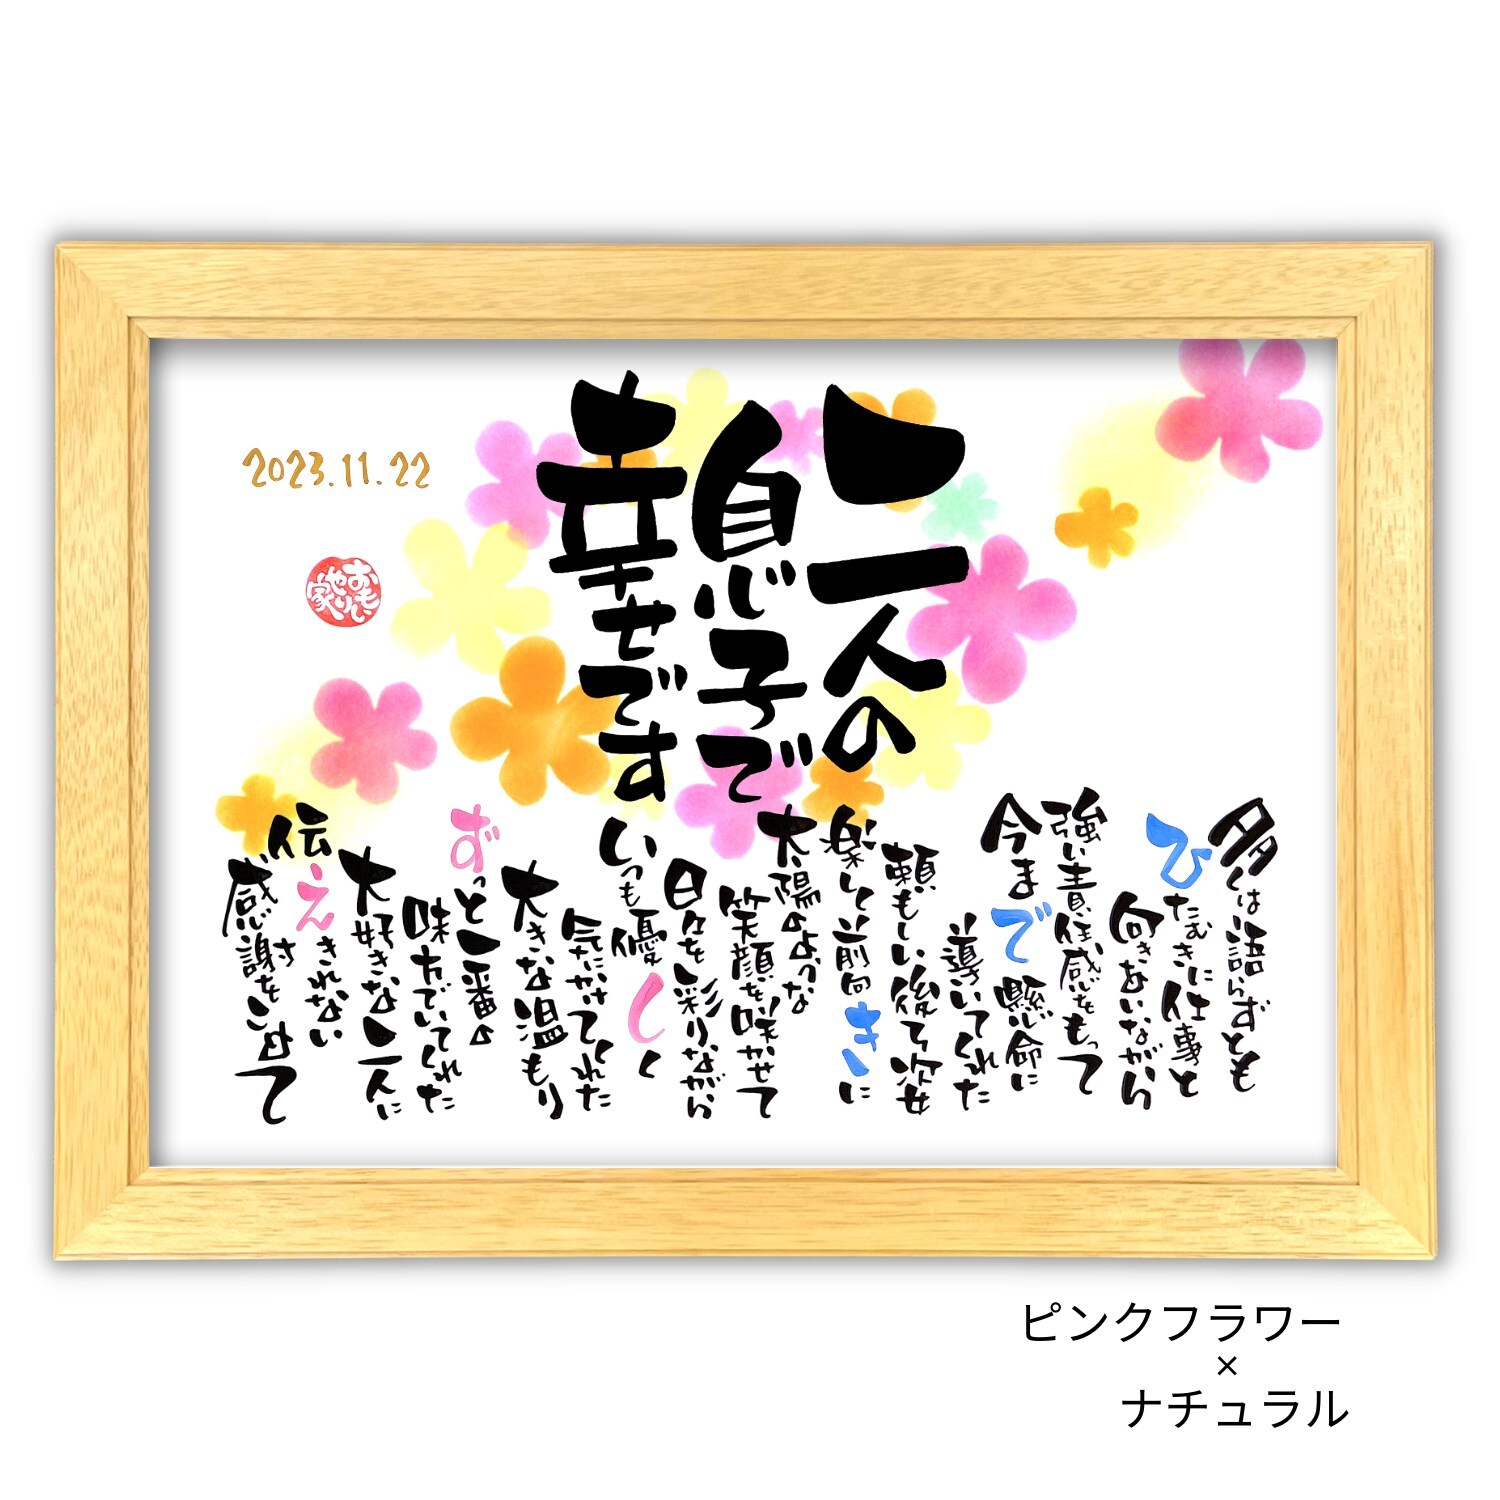 二人の
息子で
幸せです
多くは語らずとも
ひたむきに仕事と
向きあいながら
強い責任感をもって
今まで懸命に
導いてくれた
頼もしい後ろ姿
楽しく前向きに
太陽のような
笑顔を咲かせて
日々を彩りながら
いつも優しく
気にかけてくれた
大きな温もり
ずっと一番の
味方でいてくれた
大好きな二人に
伝えきれない
感謝をこめて
2023.11.22
おもい
やり
家
ピンクフラワー
×
ナチュラル